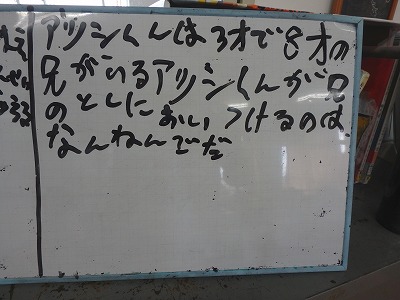 アツシくんは3才で8才の
兄がいるアツシくんが兄
のとしにおいつけるのは
なんねんでだ